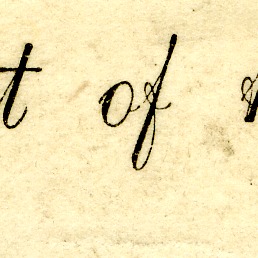 t of